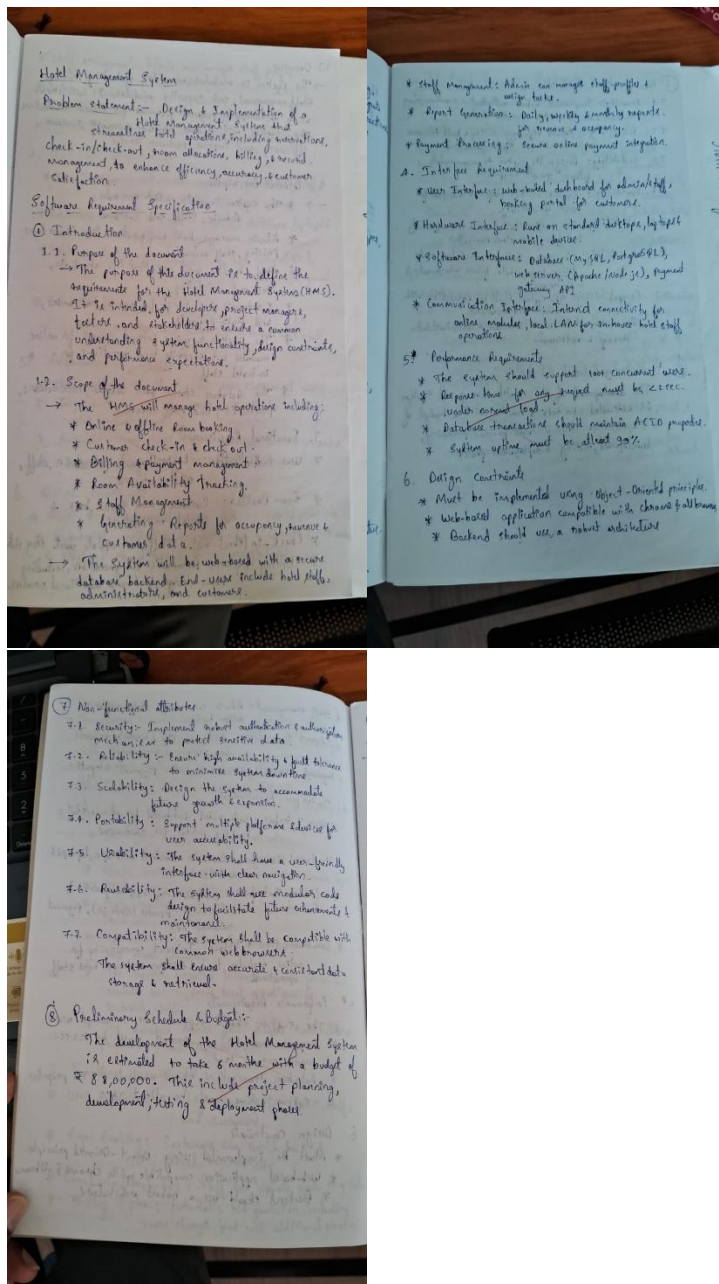 Hotel Management System
Problem Statement:- Design & Implementation of a
Hotel Management System that
streamlines hotel operations, including reservations,
check-in/check-out, room allocations, billing, & record
management, to enhance efficiency, accuracy, & customer
satisfaction.
Software Requirement Specification
① Introduction
1.1. Purpose of the document
→ The purpose of this document is to define the
requirements for the Hotel Management System (HMS).
It is intended for developers, project managers,
testers and stakeholders to ensure a common
understanding system functionality, design constraints,
and performance expectations.
1.2. Scope of the document
→ The HMS will manage hotel operations including:
* Online & offline Room booking
* Customer check-in & check out.
* Billing & payment management
* Room Availability Tracking.
* Staff Management
* Generating Reports for occupancy, revenue &
customer data.
→ The System will be web-based with a secure
database backend. End-users include hotel staff,
administrators, and customers.
* Staff Management: Admin can manage staff profiles &
assign tasks.
* Report Generation: Daily, weekly & monthly reports
for revenue & occupancy.
* Payment Processing: Secure online payment integration.
4. Interface Requirement
* User Interface: Web-based dashboard for admin/staff,
booking portal for customers.
* Hardware Interface: Runs on standard desktops, laptops &
mobile devices.
* Software Interface: Database (MySQL, PostgreSQL),
web servers, (Apache/Node.js), Payment
gateway API
* Communication Interface: Internet connectivity for
online modules, local LAN for in-house hotel staff
operations.
5.* Performance Requirements
* The system should support 100+ concurrent users.
* Response time for any request must be <2 sec.
under normal load.
* Database transactions should maintain ACID properties.
* System uptime must be atleast 99%
6. Design Constraints
* Must be implemented using Object-Oriented principles.
* Web-based application compatible with chrome & all browsers
* Backend should use a robust architecture
⑦ Non-functional attributes
7.1. Security:- Implement robust authentication & authorization
mechanisms to protect sensitive data.
7.2. Reliability:- Ensure high availability & fault tolerance
to minimize system downtime
7.3 Scalability: Design the system to accommodate
future growth & expansion.
7.4. Portability: Support multiple platforms & devices for
user accessibility.
7.5. Usability: The system shall have a user-friendly
interface with clear navigation.
7.6. Reusability: The system shall use modular code
design to facilitate future enhancements &
maintenance.
7.7. Compatibility: The system shall be compatible with
common web browsers
The system shall ensure accurate & consistent data
storage & retrieval.
⑧ Preliminary Schedule & Budget:-
The development of the Hotel Management System
is estimated to take 6 months with a budget of
₹ 88,00,000. This include project planning,
development, testing & deployment phases.